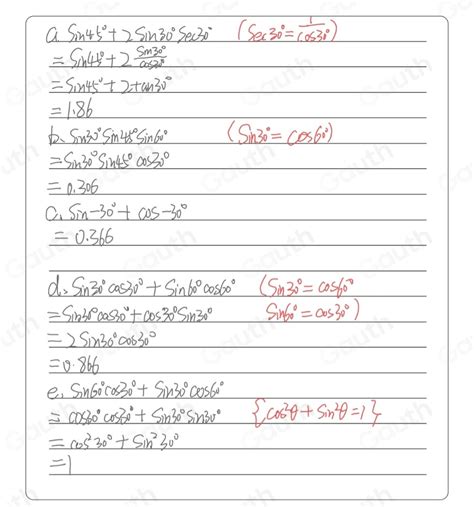 a. Sin45°+2Sin30°Sec30° (Sec30°=1/cos30°)
=Sin45°+2 Sin30°/cos30°
=Sin45°+2tan30°
=1.86
b. Sin30°Sin45°Sin60° (Sin30°=cos60°)
=Sin30°Sin45°cos30°
=0.306
c. Sin-30°+cos-30°
=0.366
d. Sin30°cos30°+Sin60°cos60° (Sin30°=cos60°
=Sin30°cos30°+cos30°Sin30° Sin60°=cos30°)
=2Sin30°cos30°
=0.866
e. Sin60°cos30°+Sin30°cos60°
=cos30°cos30°+Sin30°Sin30° {cos²θ+Sin²θ=1}
=cos²30°+Sin²30°
=1